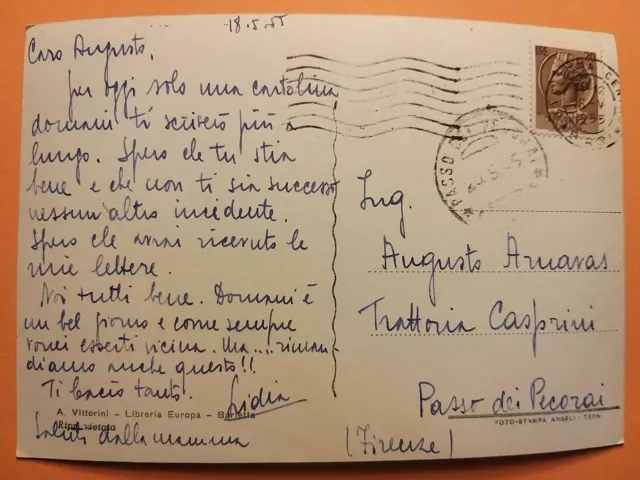 18.5.55
Caro Augusto,
per oggi solo una cartolina
domani ti scriverò più a
lungo. Spero che tu stia
bene e che non ti sia successo
nessun'altro incidente.
Spero che avrai ricevuto le
mie lettere.
Noi tutti bene. Domani è
un bel giorno e come sempre
vorrei esserti vicina. Ma.... riman-
diamo anche questo!!
Ti bacio tanto. Lidia
A. Vittorini - Libreria Europa - Barletta
Ripr. vietata
Saluti dalla mamma
PASSO DEI PECORAI
20.5.55
Ing.
Augusto Arnavas
Trattoria Casprini
Passo dei Pecorai
FOTO-STAMPA ANGELI - TERNI
(Firenze)